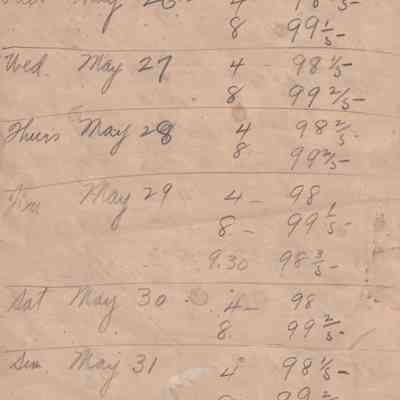 May 26 4 98 /5-
8 99 1/5-
Wed. May 27 4 - 98 1/5-
8 99 2/5-
Thurs May 28 4 98 2/5-
8 99 2/5-
May 29 4 - 98
8 - 99 1/5-
9.30 98 3/5-
Sat May 30 4 - 98
8. 99 2/5-
Sun. May 31 4 98 1/5-
99 2